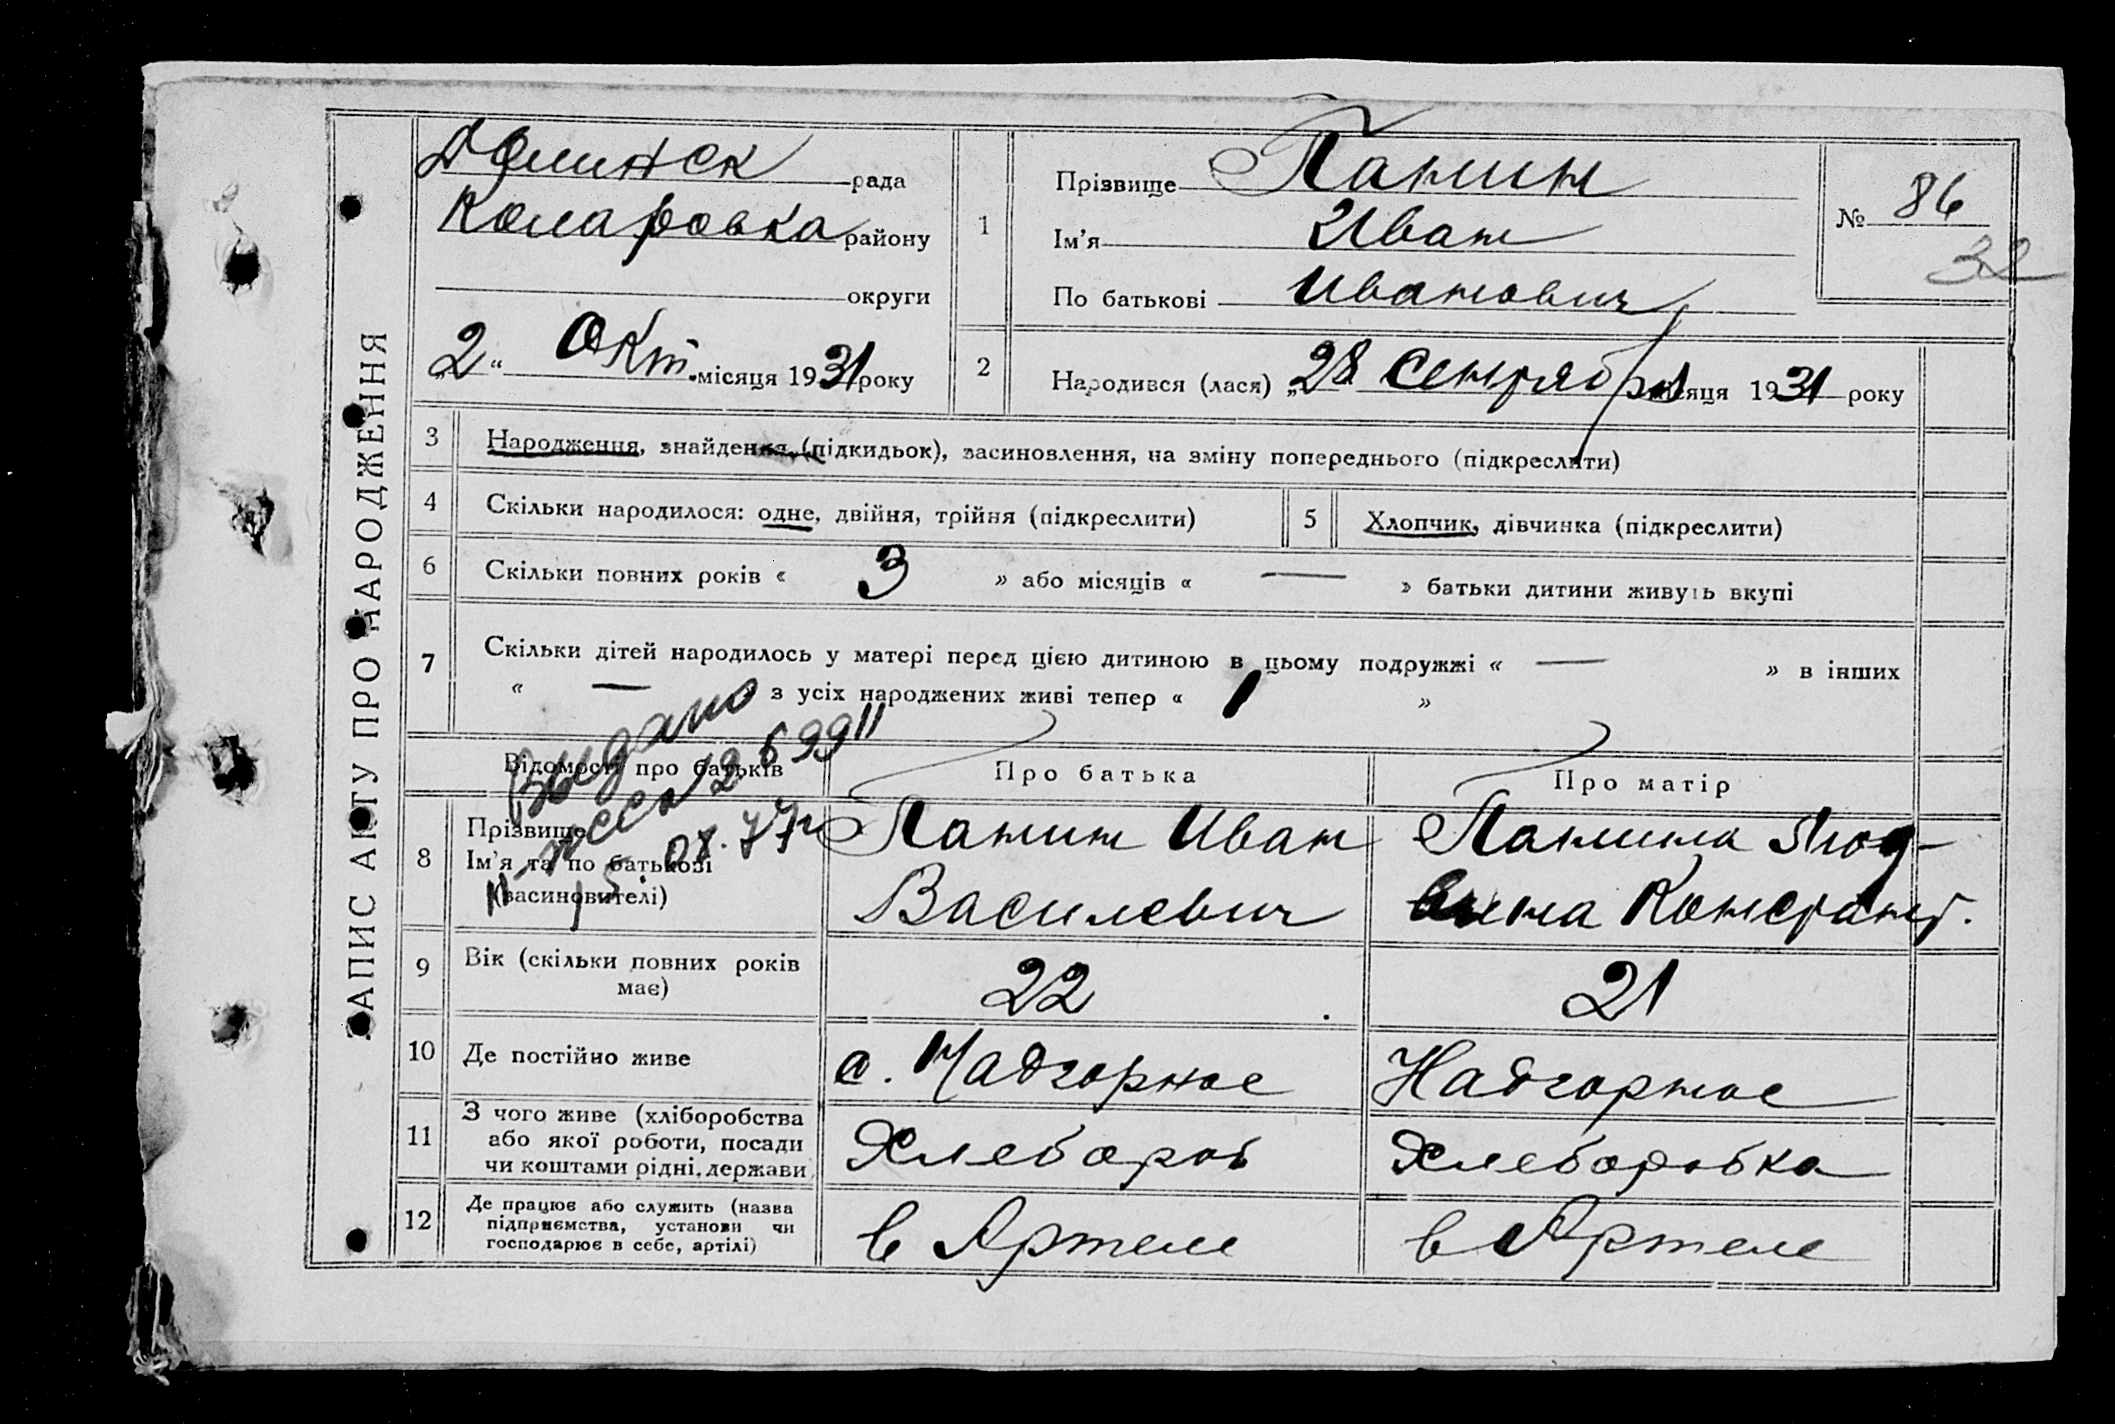 ЗАПИС АКТУ ПРО НАРОДЖЕННЯ
Долинск рада
Коларовка району
округи
„2“ Окт. місяця 1931 року
1
Прізвище Панин
Ім'я Иван
По батькові Иванович
№ 86
32
2
Народився (лася) „28 сентрября місяця 1931 року
3 Народження, знайдення (підкидьок), засиновлення, на зміну попереднього (підкреслити)
4 Скільки народилося: одне, двійня, трійня (підкреслити)
5 Хлопчик, дівчинка (підкреслити)
6 Скільки повних років « 3 » або місяців « — » батьки дитини живуть вкупі
7 Скільки дітей народилось у матері перед цією дитиною в цьому подружжі « — » в інших
« — з усіх народжених живі тепер « 1 »
Выдано
699"
15. 08. 77г
Відомості про батьків
Про батька
Про матір
8
Прізвище
Ім'я та по батькові
(засиновителі)
Панин Иван
Василевич
Панина Люд-
Констант.
9
Вік (скільки повних років
має)
22
21
10 Де постійно живе
с. Надгорное
Надгорное
11
З чого живе (хліборобства
або якої роботи, посади
чи коштами рідні, держави
Хлебороб
Хлеборобка
12
Де працює або служить (назва
підприємства, установи чи
господарює в себе, артілі)
в Артеле
в Артеле